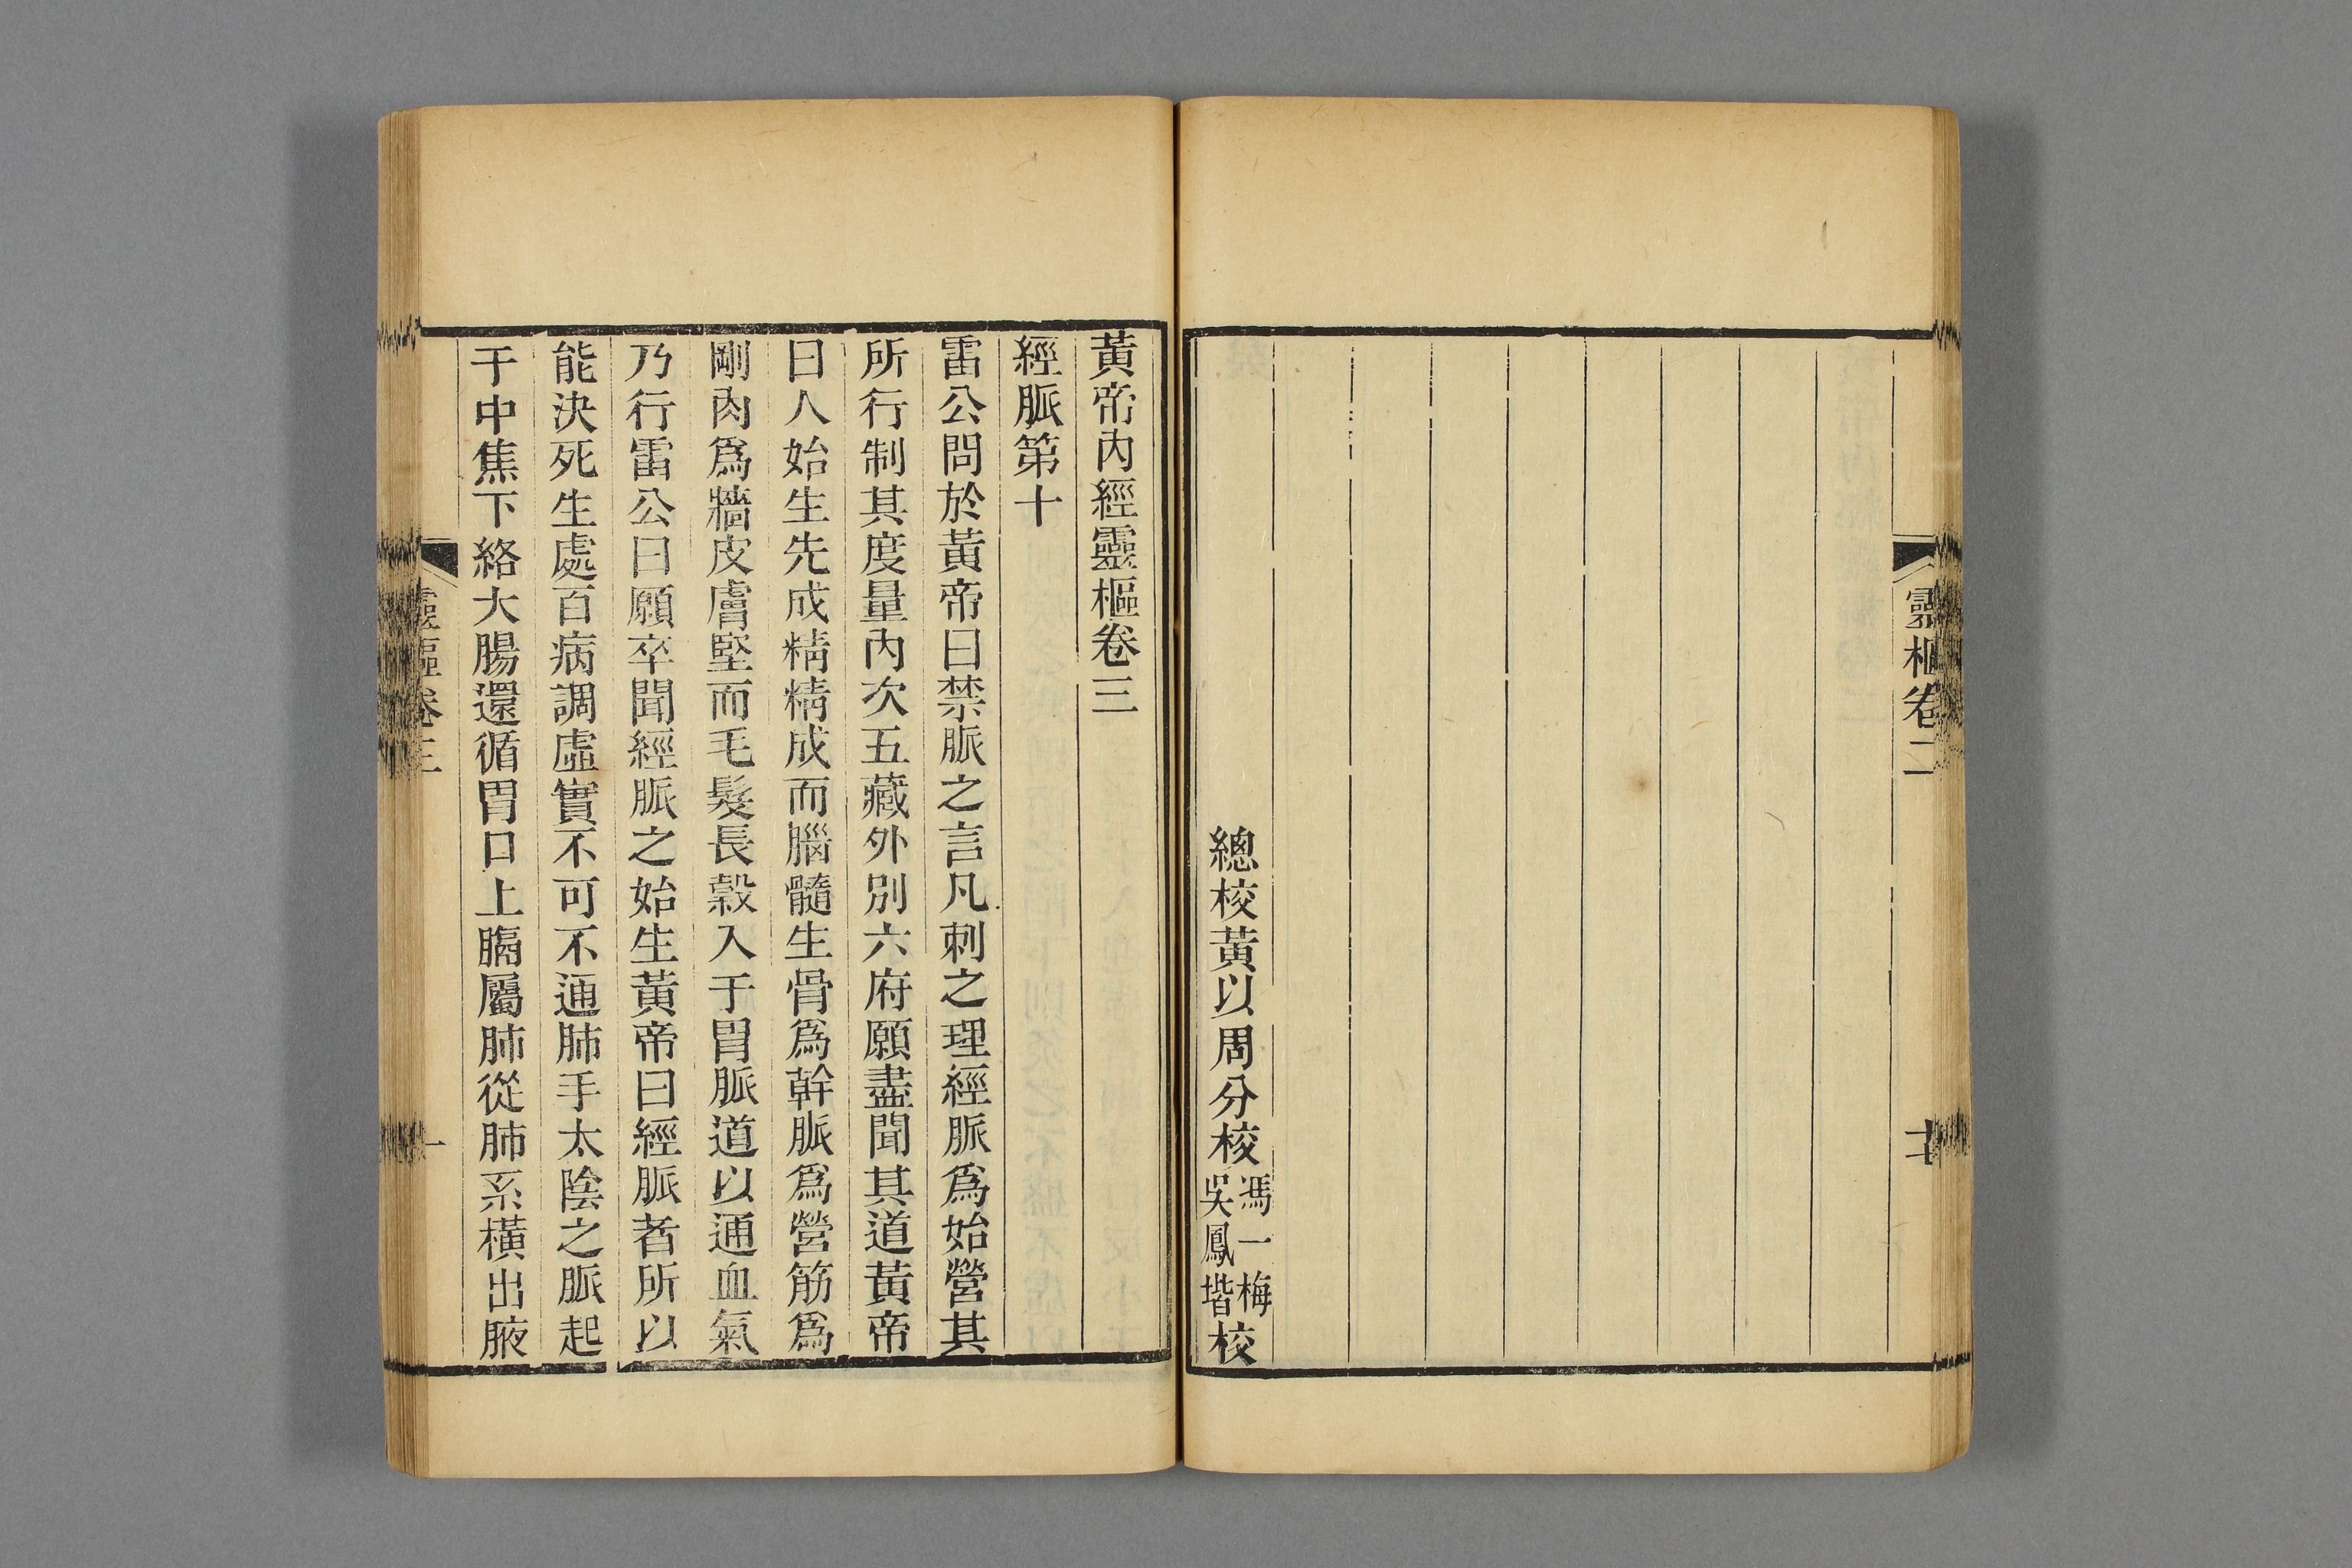 靈樞卷二
總校黃以周分校馮一梅吳鳳堦校
黃帝內經靈樞卷三
經脈第十
雷公問於黃帝曰禁脈之言凡刺之理經脈爲始營其
所行制其度量內次五藏外別六府願盡聞其道黃帝
曰人始生先成精精成而腦髓生骨爲幹脈爲營筋爲
剛肉爲牆皮膚堅而毛髮長穀入于胃脈道以通血氣
乃行雷公曰願卒聞經脈之始生黃帝曰經脈者所以
能決死生處百病調虛實不可不通肺手太陰之脈起
于中焦下絡大腸還循胃口上膈屬肺從肺系橫出腋
靈樞卷三
一